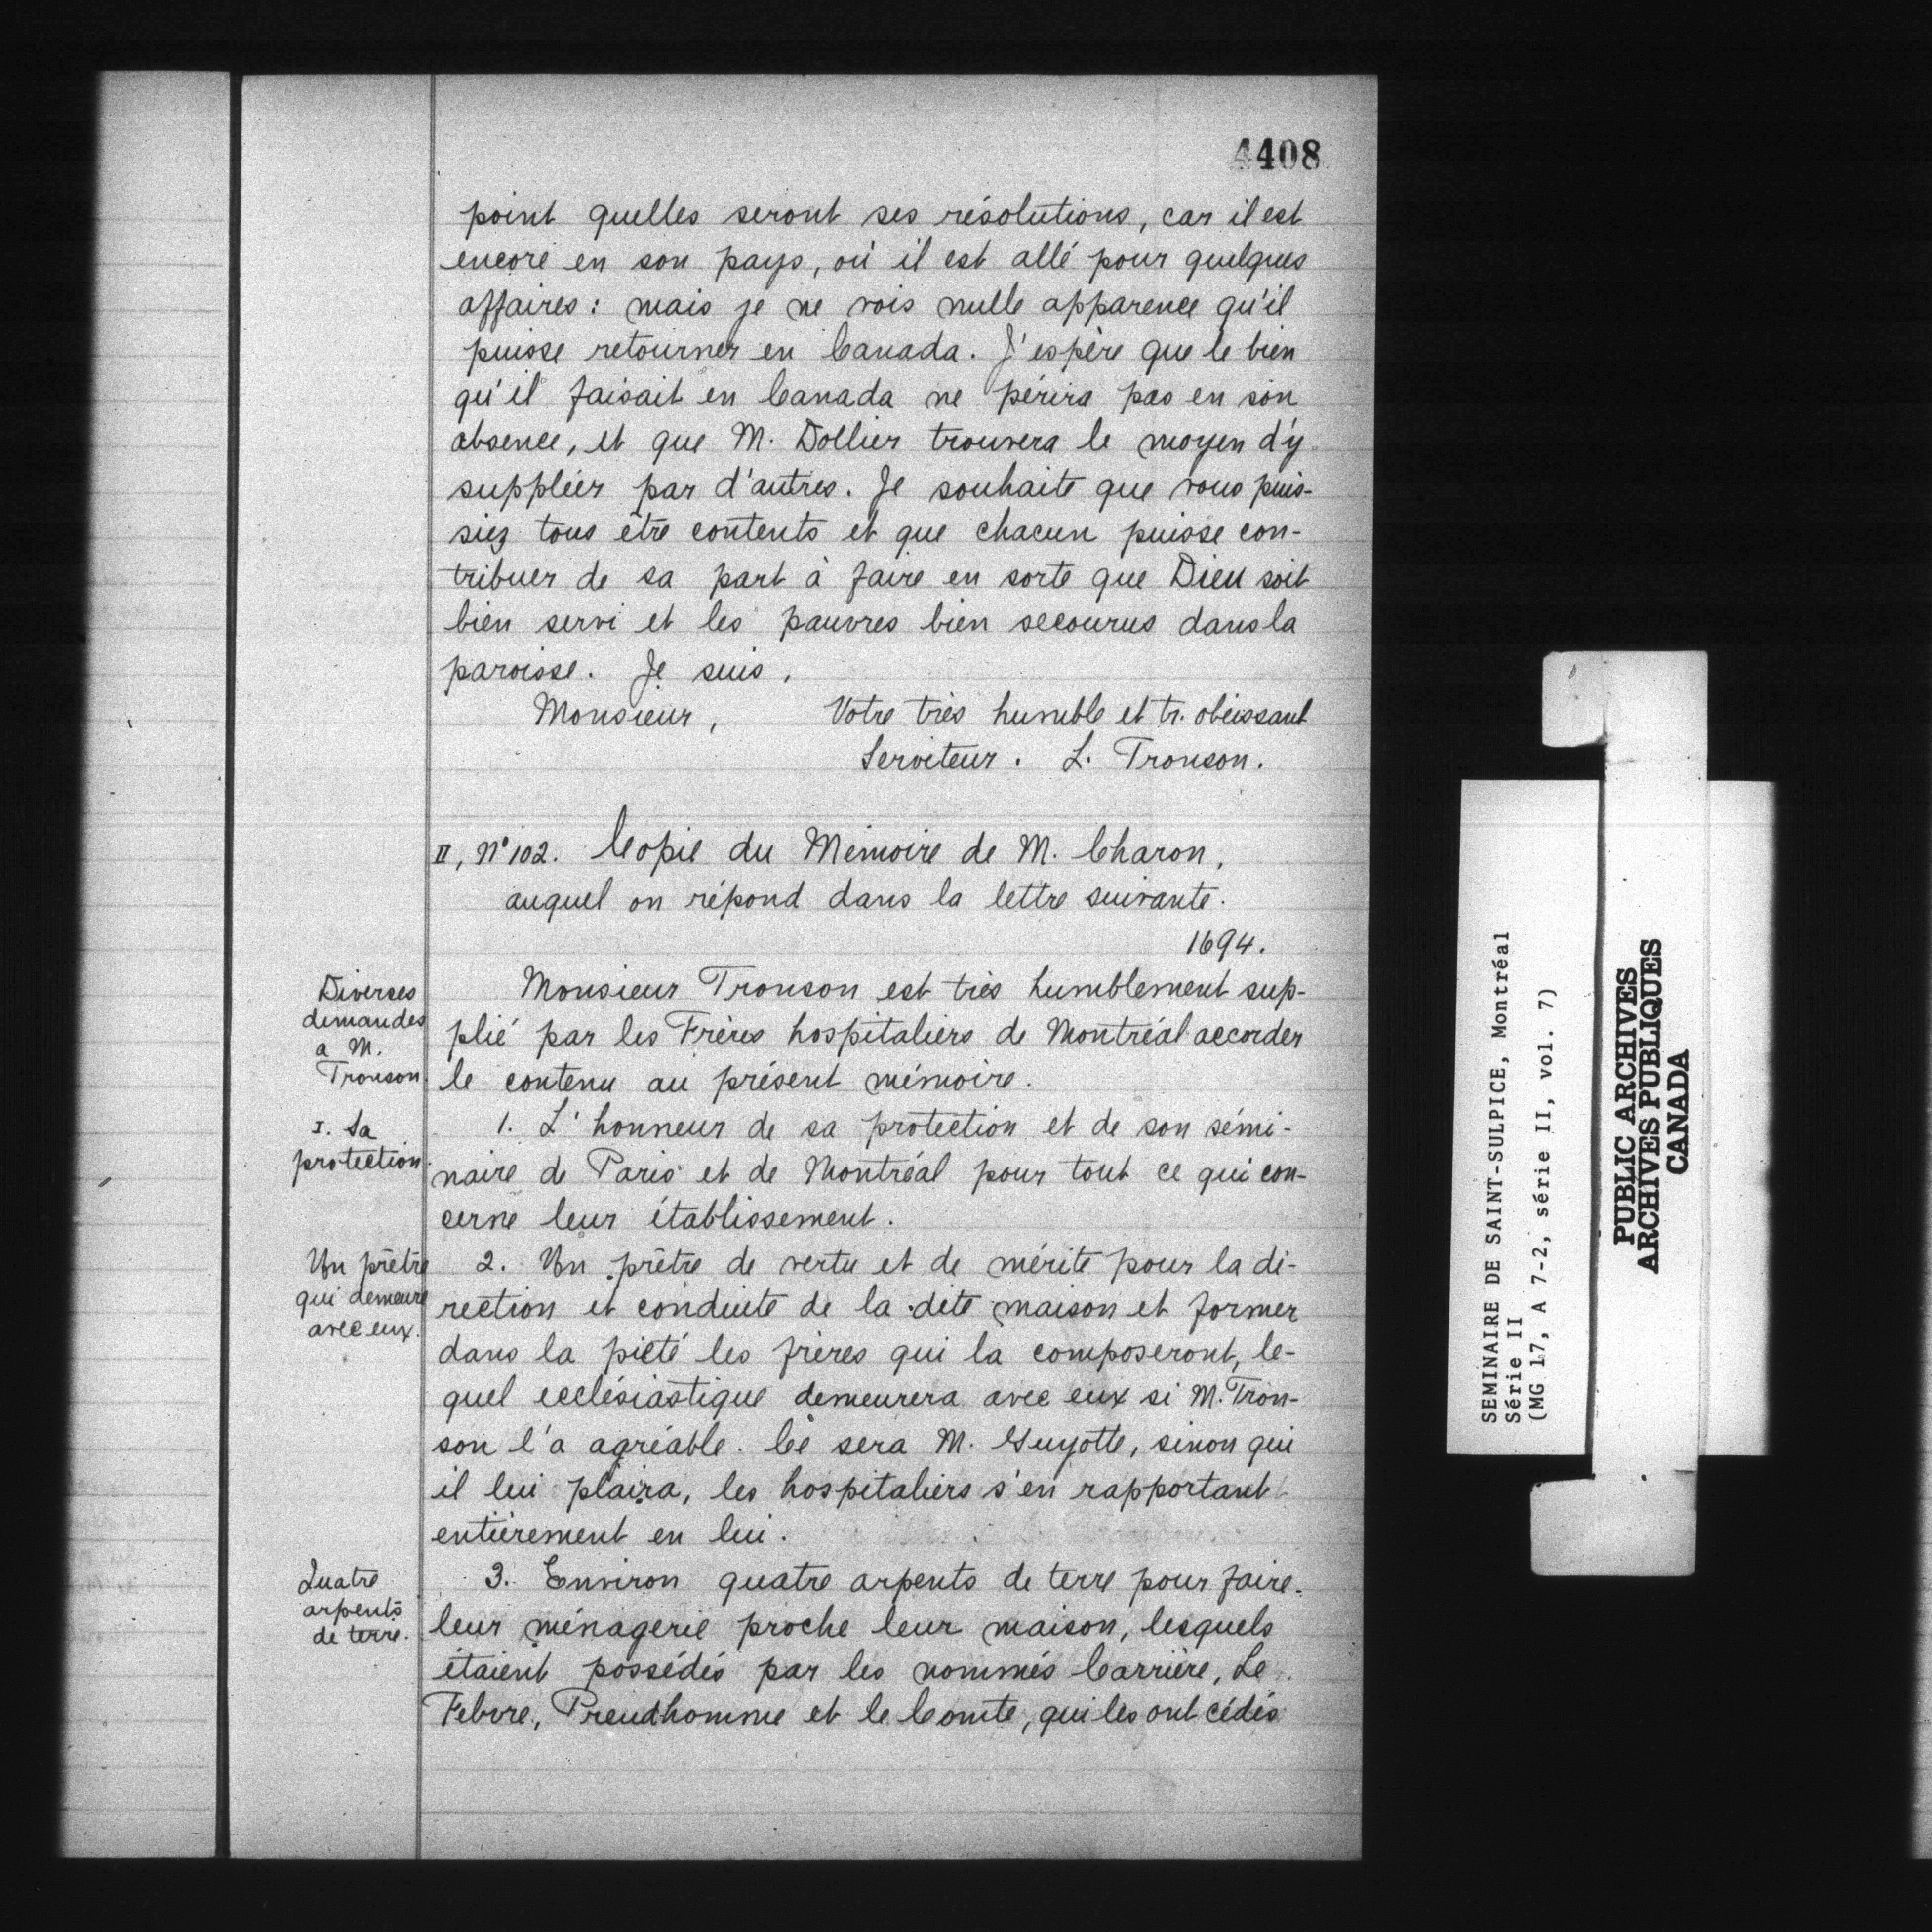 4408
point quelles seront ses résolutions, car il est
encore en son pays, où il est allé pour quelques
affaires : mais je ne vois nulle apparence qu'il
puisse retourner en Canada. J'espère que le bien
qu'il faisait en Canada ne périra pas en son
absence, et que M. Dollier trouvera le moyen d'y
suppléer par d'autres. Je souhaite que vous puis-
siez tous être contents et que chacun puisse con-
tribuer de sa part à faire en sorte que Dieu soit
bien servi et les pauvres bien secourus dans la
paroisse. Je suis,
Monsieur, Votre très humble et tr. obéissant
Serviteur. L. Tronson.
II, N° 102. Copie du Mémoire de M. Charon,
auquel on répond dans la lettre suivante.
1694.
Diverses
demandes
a M.
Tronson.
Monsieur Tronson est très humblement sup-
plié par les Frères hospitaliers de Montréal accorder
le contenu au présent mémoire.
I. Sa
protection.
1. L'honneur de sa protection et de son sémi-
naire de Paris et de Montréal pour tout ce qui con-
cerne leur établissement.
Un prêtre
qui demeure
avec eux.
2. Un prêtre de vertu et de mérite pour la di-
rection et conduite de la dite maison et former
dans la piété les frères qui la composeront, le-
quel ecclésiastique demeurera avec eux si M. Tron-
son l'a agréable. Ce sera M. Guyotte, sinon qui
il lui plaira, les hospitaliers s'en rapportant
entièrement en lui.
Quatre
arpents
de terre.
3. Environ quatre arpents de terre pour faire
leur ménagerie proche leur maison, lesquels
étaient possédés par les nommés Carrière, Le
Febvre, Preudhomme et le Comte, qui les ont cédés
SEMINAIRE DE SAINT-SULPICE, Montréal
Série II
(MG 17, A 7-2, série II, vol. 7)
PUBLIC ARCHIVES
ARCHIVES PUBLIQUES
CANADA